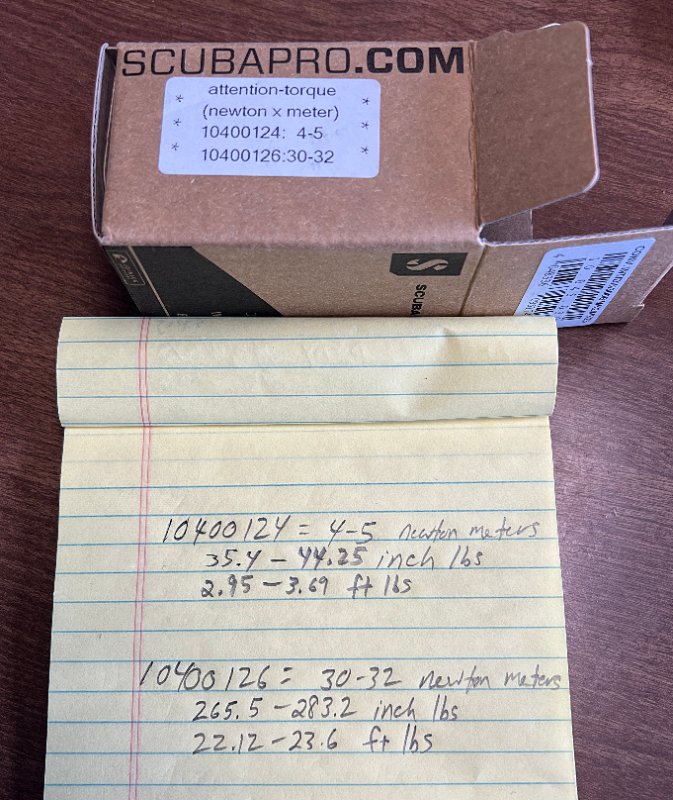 SCUBAPRO.COM
attention-torque
* (newton x meter) *
* 10400124: 4-5 *
* 10400126:30-32 *
S
SCUBA
10400124 = 4-5 newton meters
35.4 - 44.25 inch lbs
2.95 - 3.69 ft lbs
10400126 = 30-32 newton meters
265.5 - 283.2 inch lbs
22.12 - 23.6 ft lbs